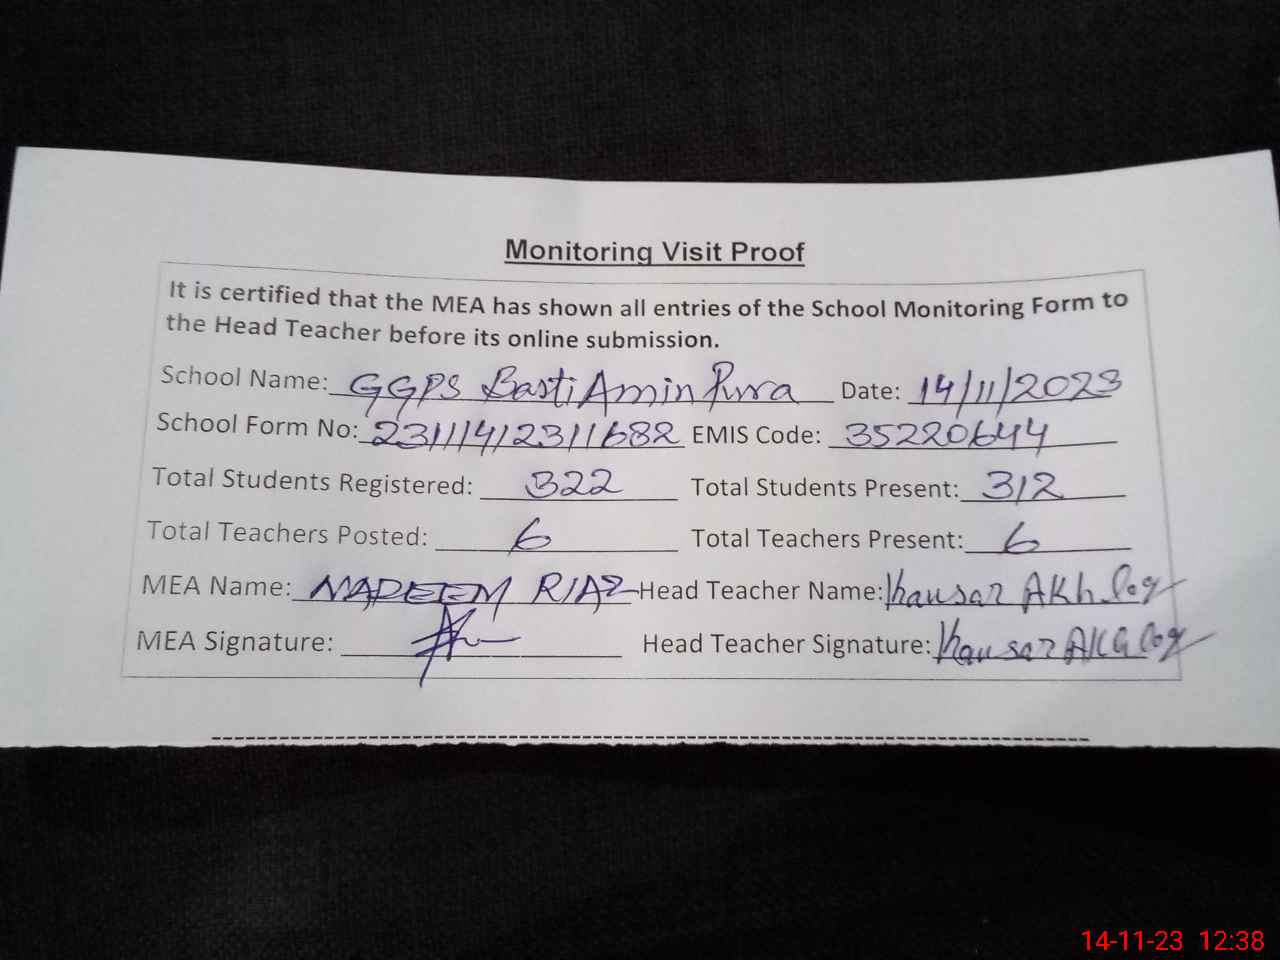 Monitoring Visit Proof
It is certified that the MEA has shown all entries of the School Monitoring Form to
the Head Teacher before its online submission.
School Name: GGPS Basti Amin Pura Date: 14/11/2023
School Form No: 23111412311682 EMIS Code: 35220644
Total Students Registered: 322 Total Students Present: 312
Total Teachers Posted: 6 Total Teachers Present: 6
MEA Name: NADEEM RIAZ Head Teacher Name:
MEA Signature: Head Teacher Signature:
14-11-23 12:38